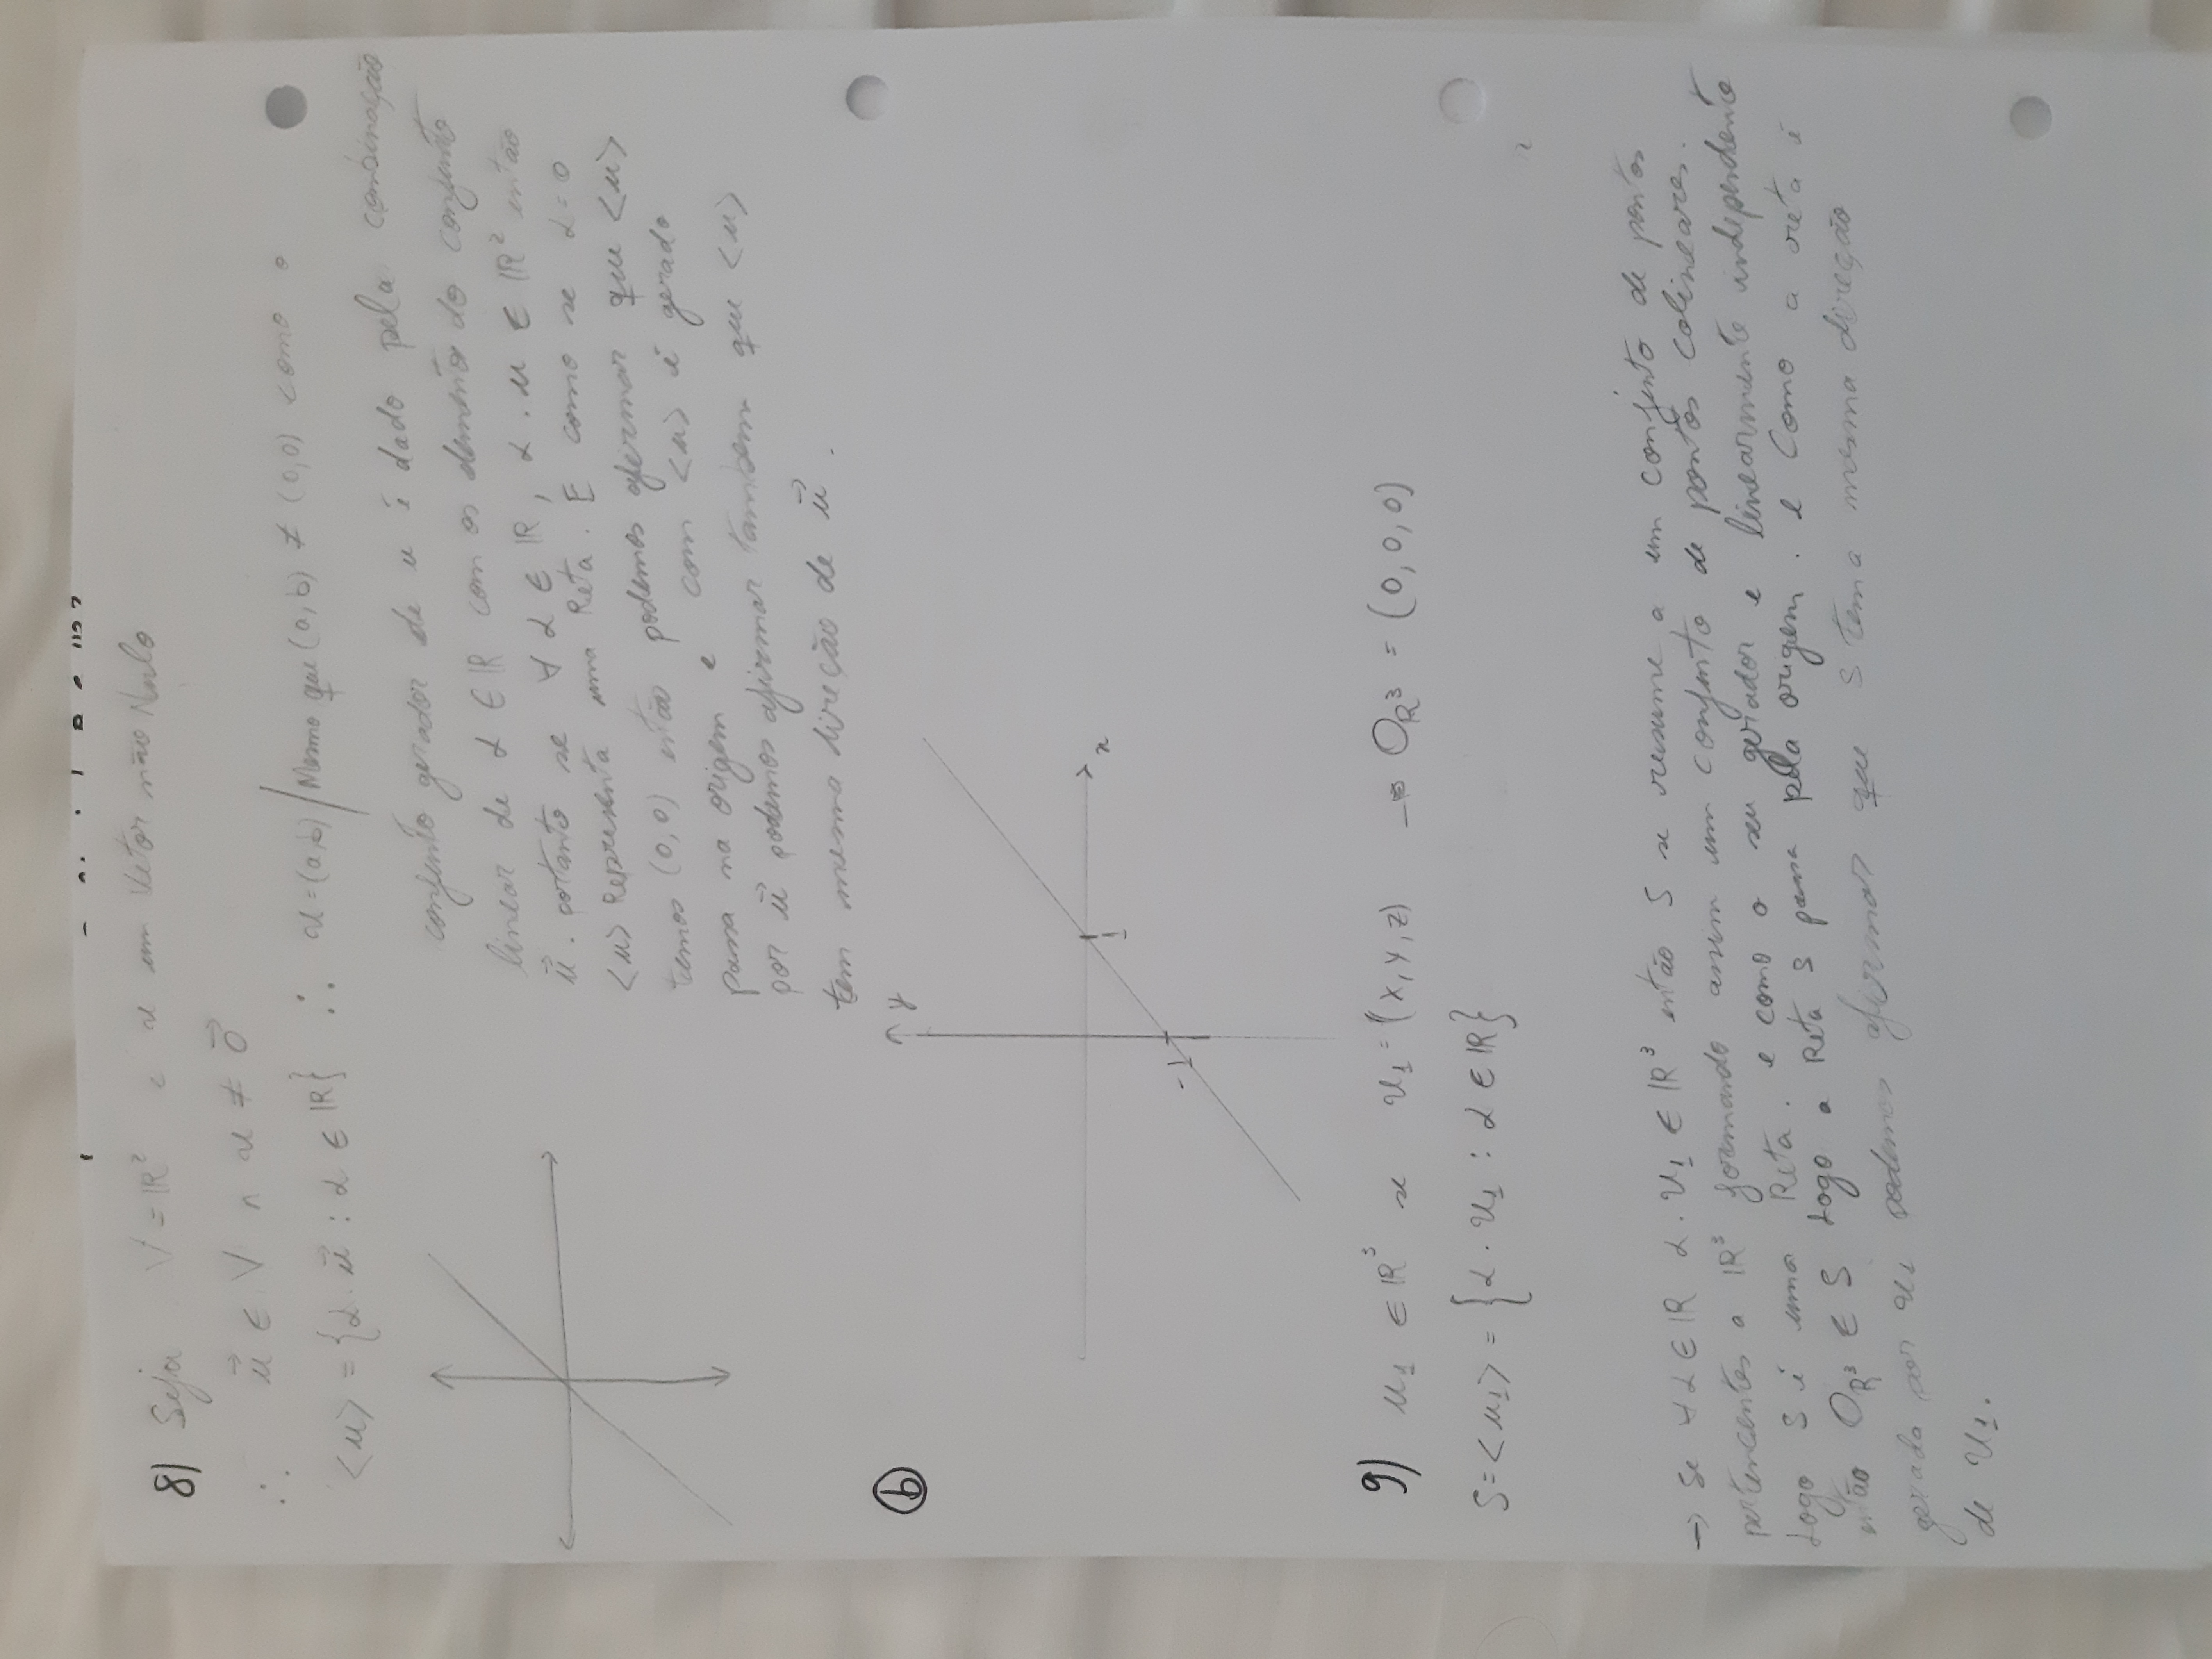 8) Seja V = ℝ² e u um Vetor não Nulo
∴ u⃗ ∈ V ∧ u ≠ 0⃗
<u> = {α. u⃗ : α ∈ ℝ} ∴ u = (a,b) / Mesmo que (a,b) ≠ (0,0) como o
conjunto gerador de u é dado pela combinação
linear de α ∈ ℝ com os elemento do conjunto
u⃗. portanto se ∀ α ∈ ℝ, α . u ∈ ℝ² então
<u> Representa uma Reta. E como se α = 0
temos (0,0) então podemos afirmar que <u>
passa na origem e com <u> é gerado
por u⃗ podemos afirmar tambem que <u>
tem mesma direção de u⃗.
b
y
x
1
-1
9) u₁ ∈ ℝ³ se u₁ = (x, y, z) → O_ℝ³ = (0, 0, 0)
S = <u₁> = {α . u₁ : α ∈ ℝ}
→ Se ∀ α ∈ ℝ α . u₁ ∈ ℝ³ então S se resume a um conjunto de pontos
pertencentes a ℝ³ formando assim um conjunto de pontos colineares.
Logo S é uma Reta. e como o seu gerador e linearmente independente
então O_ℝ³ ∈ S Logo a Reta S passa pela origem. e Como a reta é
gerada por u₁ podemos afirmar que S tem a mesma direção
de u₁.